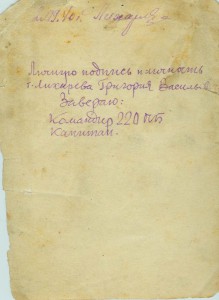 Личную подпись и личность
т. Лихарева Григория Василье
Заверяю:
Командир 220
Капитан.